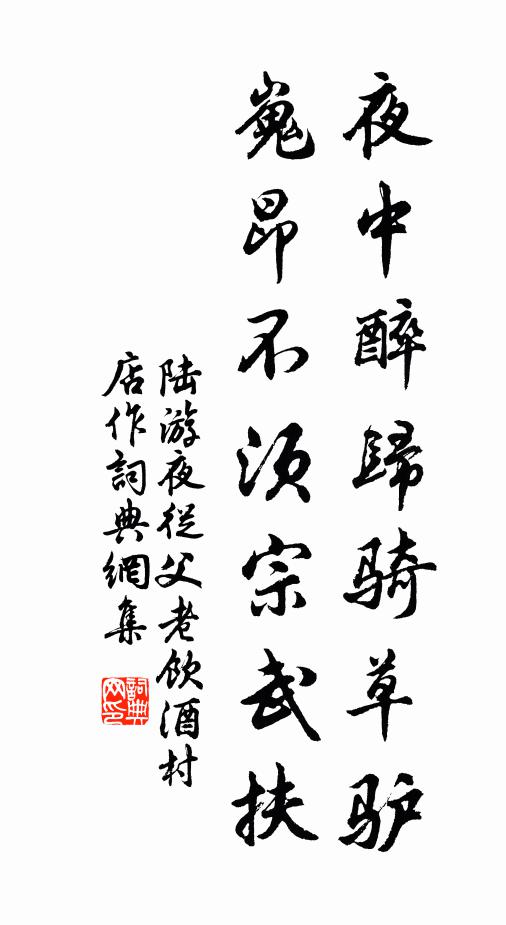 夜中醉歸骑草驴
嵬昂不须宗武扶
陆游夜從父老飲酒村
店作詞典網集
詞典
网印